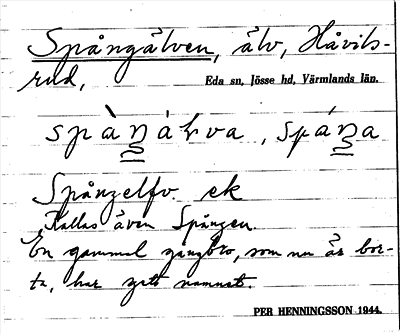 Spångälven, älv, Håvils-
rud,
Eda sn, Jösse hd, Värmlands län.
spàŋálva, spáŋa
Spångelfv. ek
Kallas även Spången.
En gammal gångbro, som nu är bor-
ta, har gett namnet.
PER HENNINGSSON 1944.